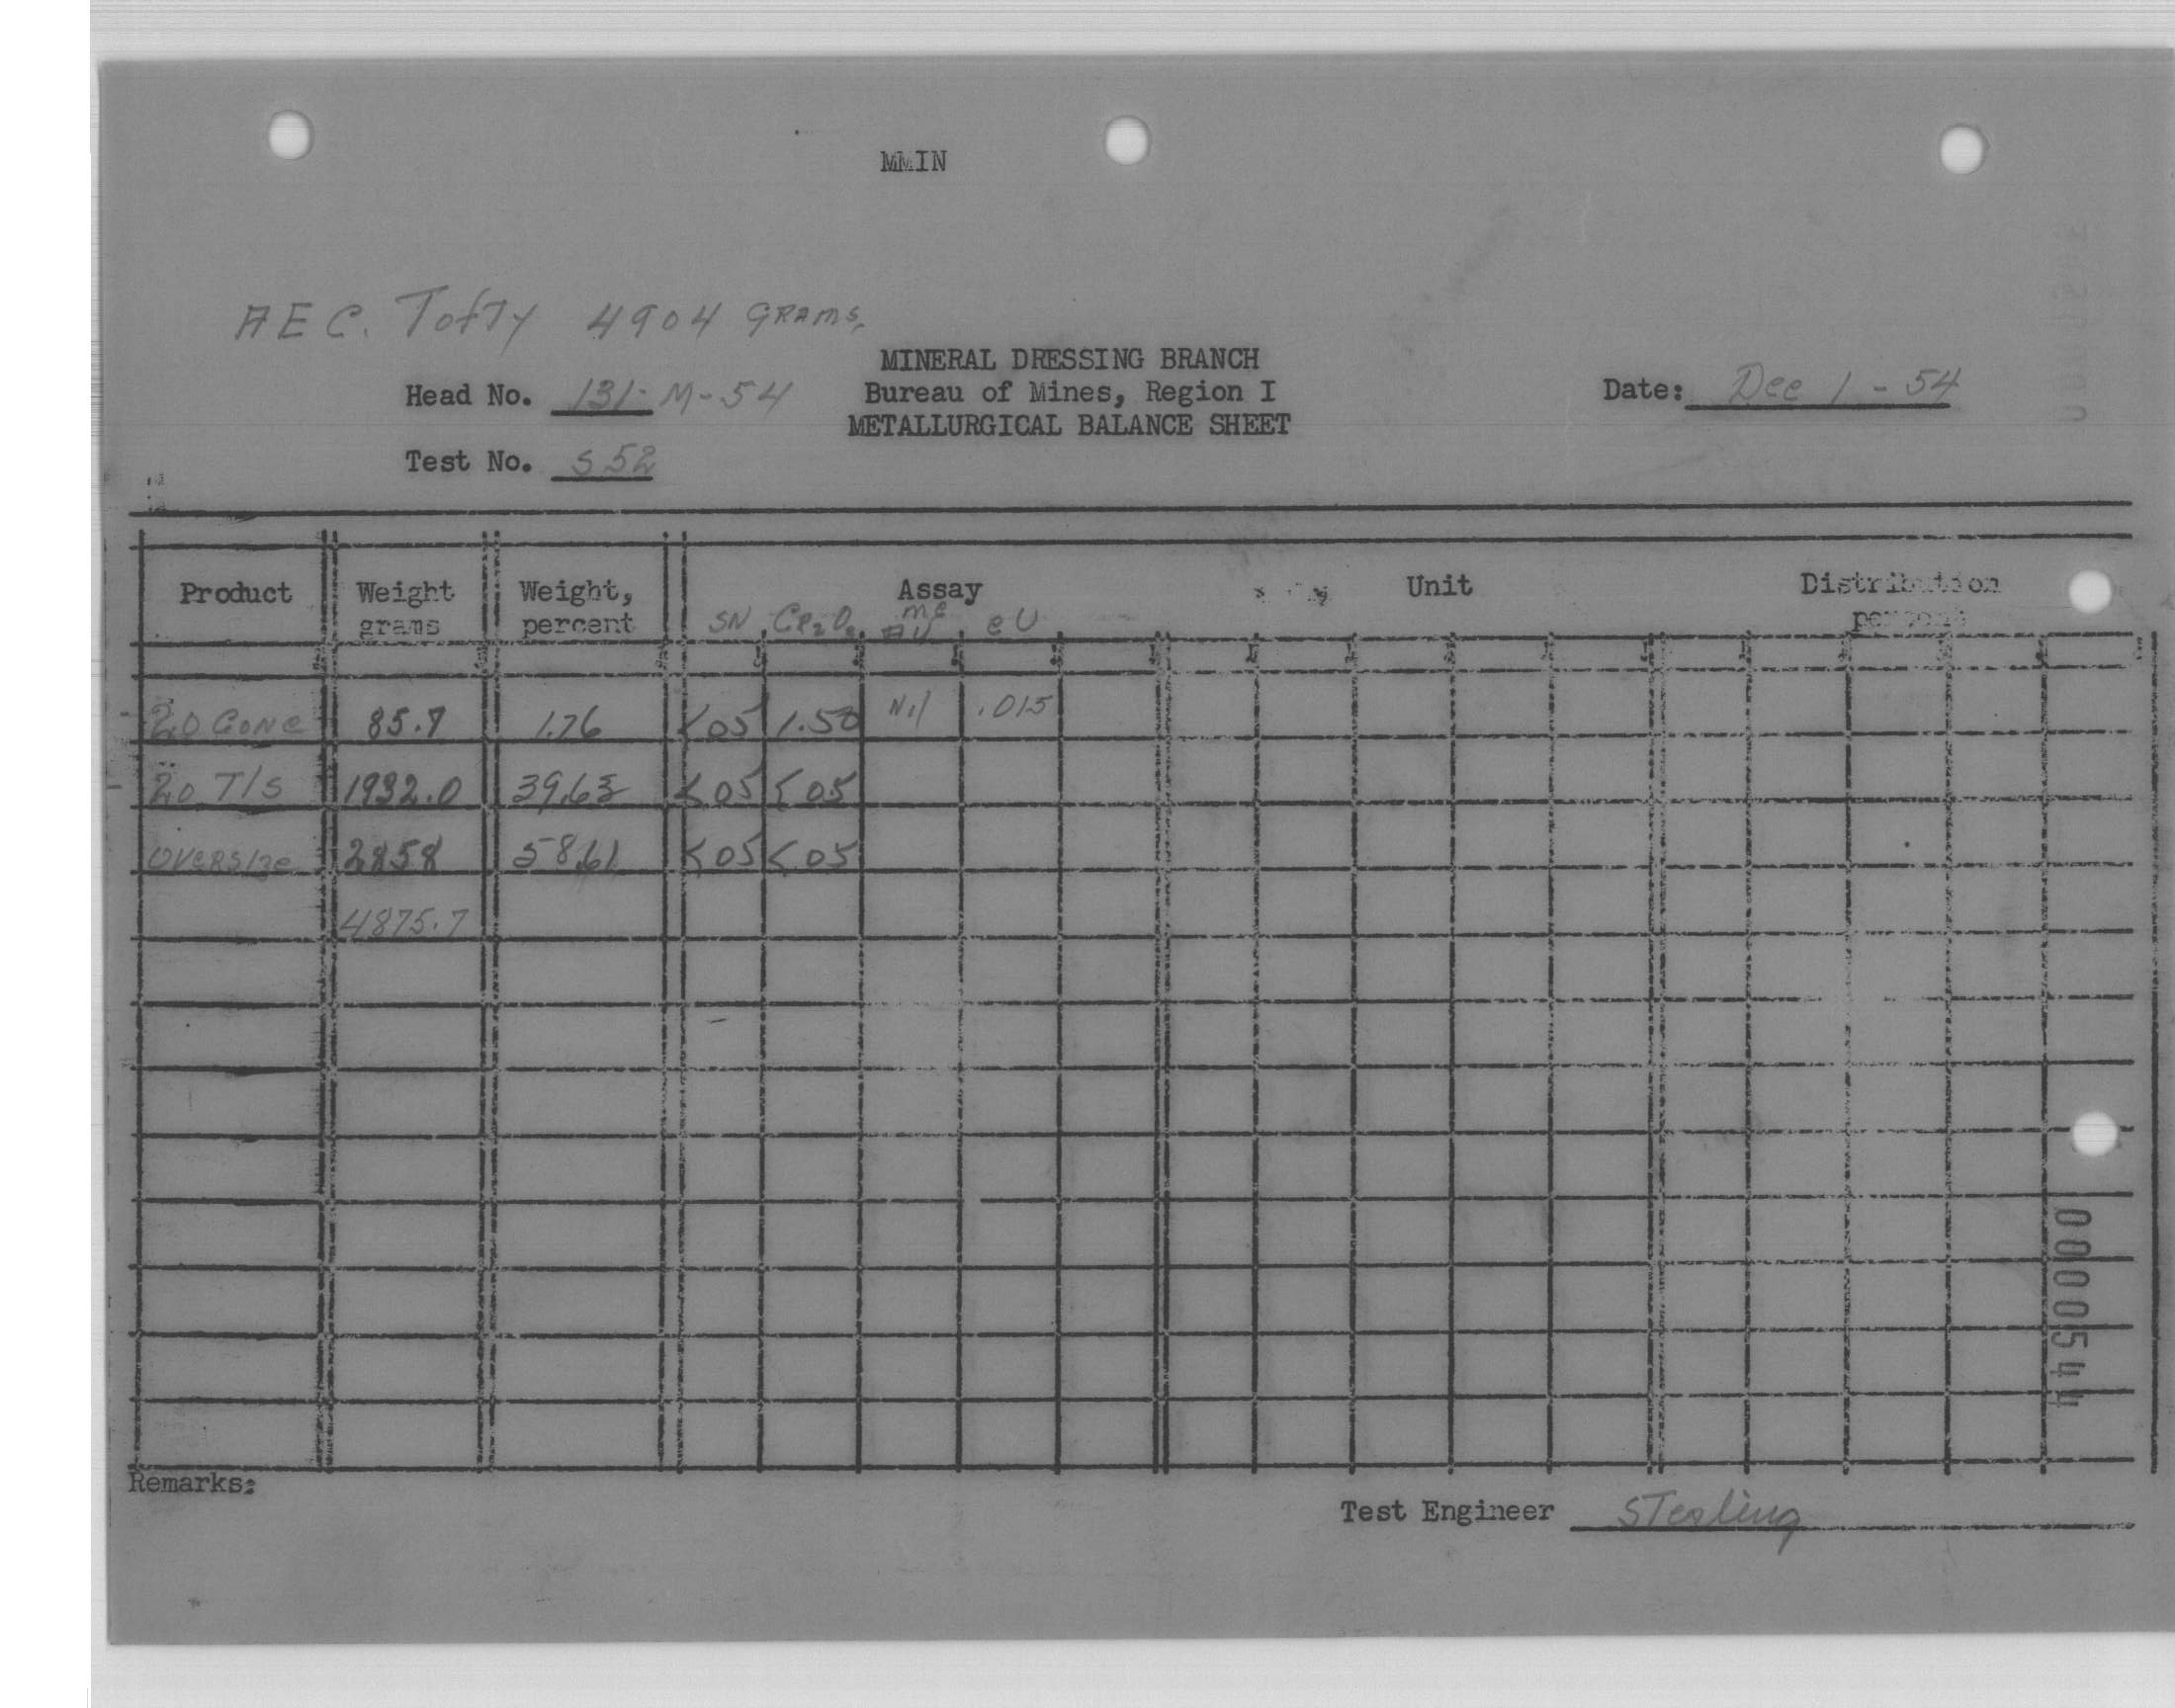 MMIN
AEC. Tofty 4904 GRAMS.
MINERAL DRESSING BRANCH
Head No. 131-M-54 Bureau of Mines, Region I Date: Dec 1 - 54
METALLURGICAL BALANCE SHEET
Test No. S52
Product Weight grams Weight, percent Assay Unit Distribution percent
SN Cr2O3 mg AU eU
20 Conc 85.7 1.76 <05 1.50 Nil .015
20 T/S 1932.0 39.63 <05 <05
Oversize 2858 58.61 <05 <05
4875.7
Remarks:
Test Engineer Sterling
0000544